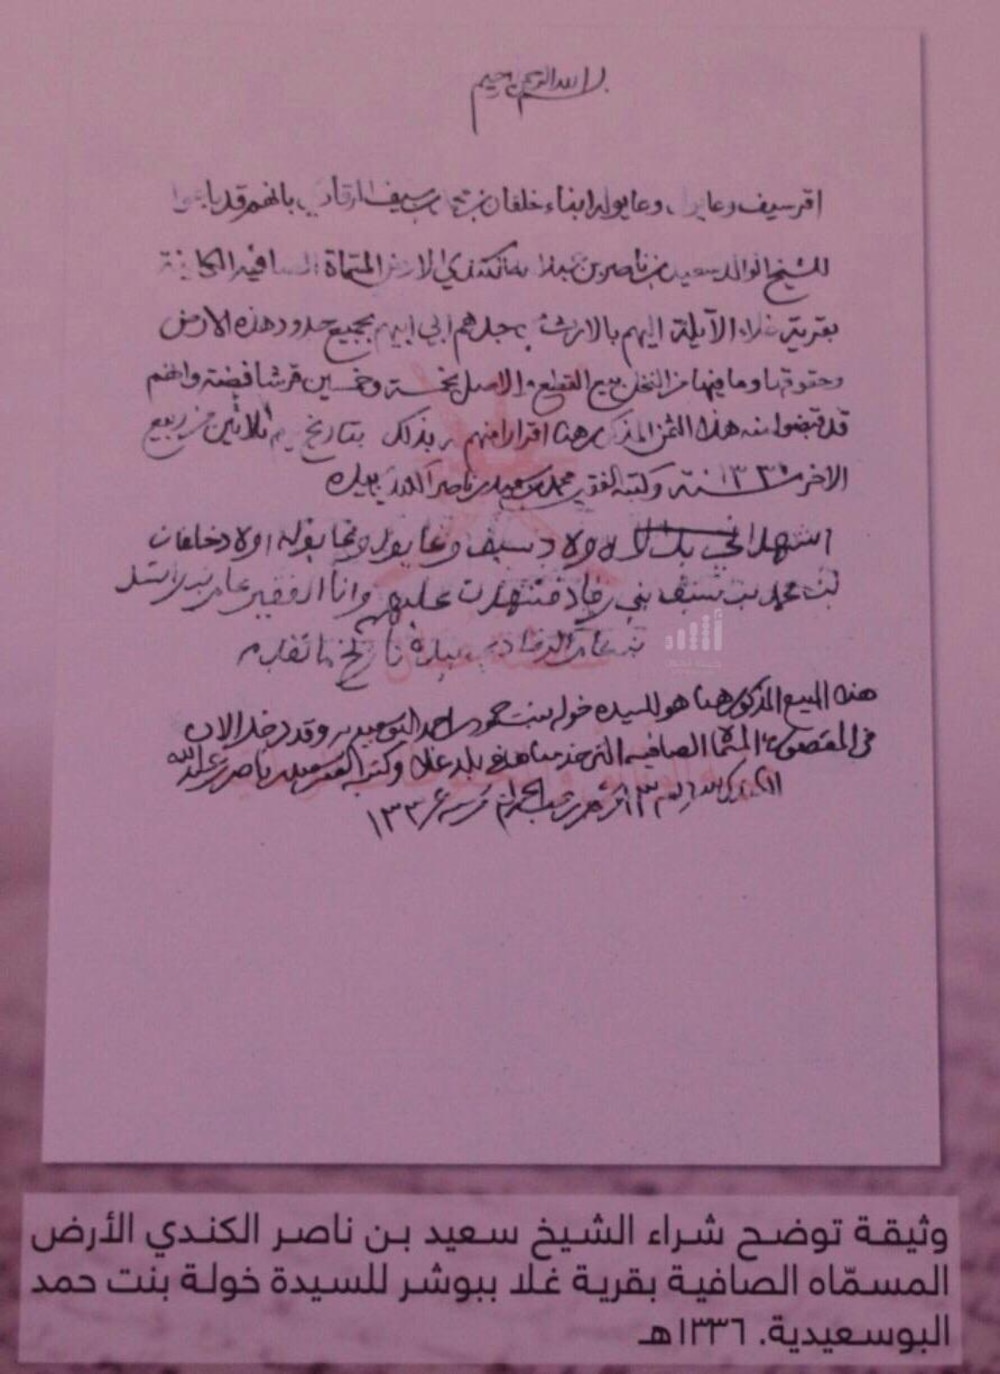 بسم الله الرحمن الرحيم
اقر سيف وعا وعا ابناء خلفان بن سيف بانهم قد باعوا
للشيخ الوالد سعيد بن ناصر بن عبدالله الكندي الارض المسماة الصافيه الكاينة
بقرية غلاء الآيلة اليهم بالارث من جدهم ابي ابيهم بجميع حدود هذه الارض
وحقوقها وما فيها من النخل بيع القطع الاصل بخمسة وخمسين قرشا فضة وانهم
قد قبضوا منه هذا الثمن المذكور هنا اقرارا منهم بذلك بتاريخ يوم ثلاثين من ربيع
الاخر سنة وكتبه الفقير محمد بن سعيد بن ناصر الكندي بيده
اشهداني بذلك اولاد سيف و و اولاد خلفان
بن محمد بن سيف بني فشهدت عليهم وانا الفقير عامر بن راشد
بن بيده تاريخ ما تقدم
هذا المبيع المذكور هنا هو للسيده خوله بنت حمود بن احمد البوسعيديه وقد دخل الان
في المسما الصافيه التي بلد غلا وكتبه سعيد بن ناصر بن عبدالله
الكندي بيده ١٣٣٦
وثيقة توضح شراء الشيخ سعيد بن ناصر الكندي الأرض
المسمّاه الصافية بقرية غلا ببوشر للسيدة خولة بنت حمد
البوسعيدية. ١٣٣٦هـ